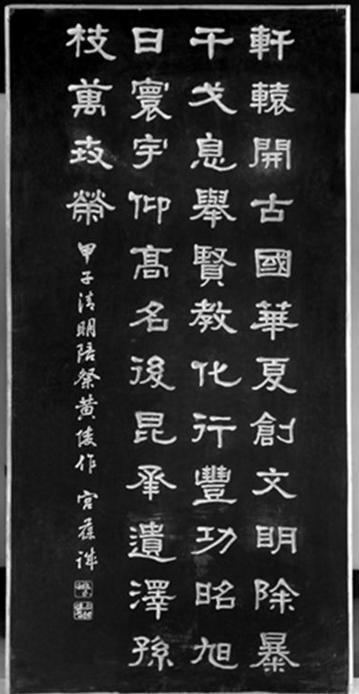 軒轅開古國華夏創文明除暴
干戈息舉賢教化行豐功昭旭
日寰宇仰高名後昆承遺澤孫
枝萬歧榮
甲子清明陪祭黄陵作 宫葆諴